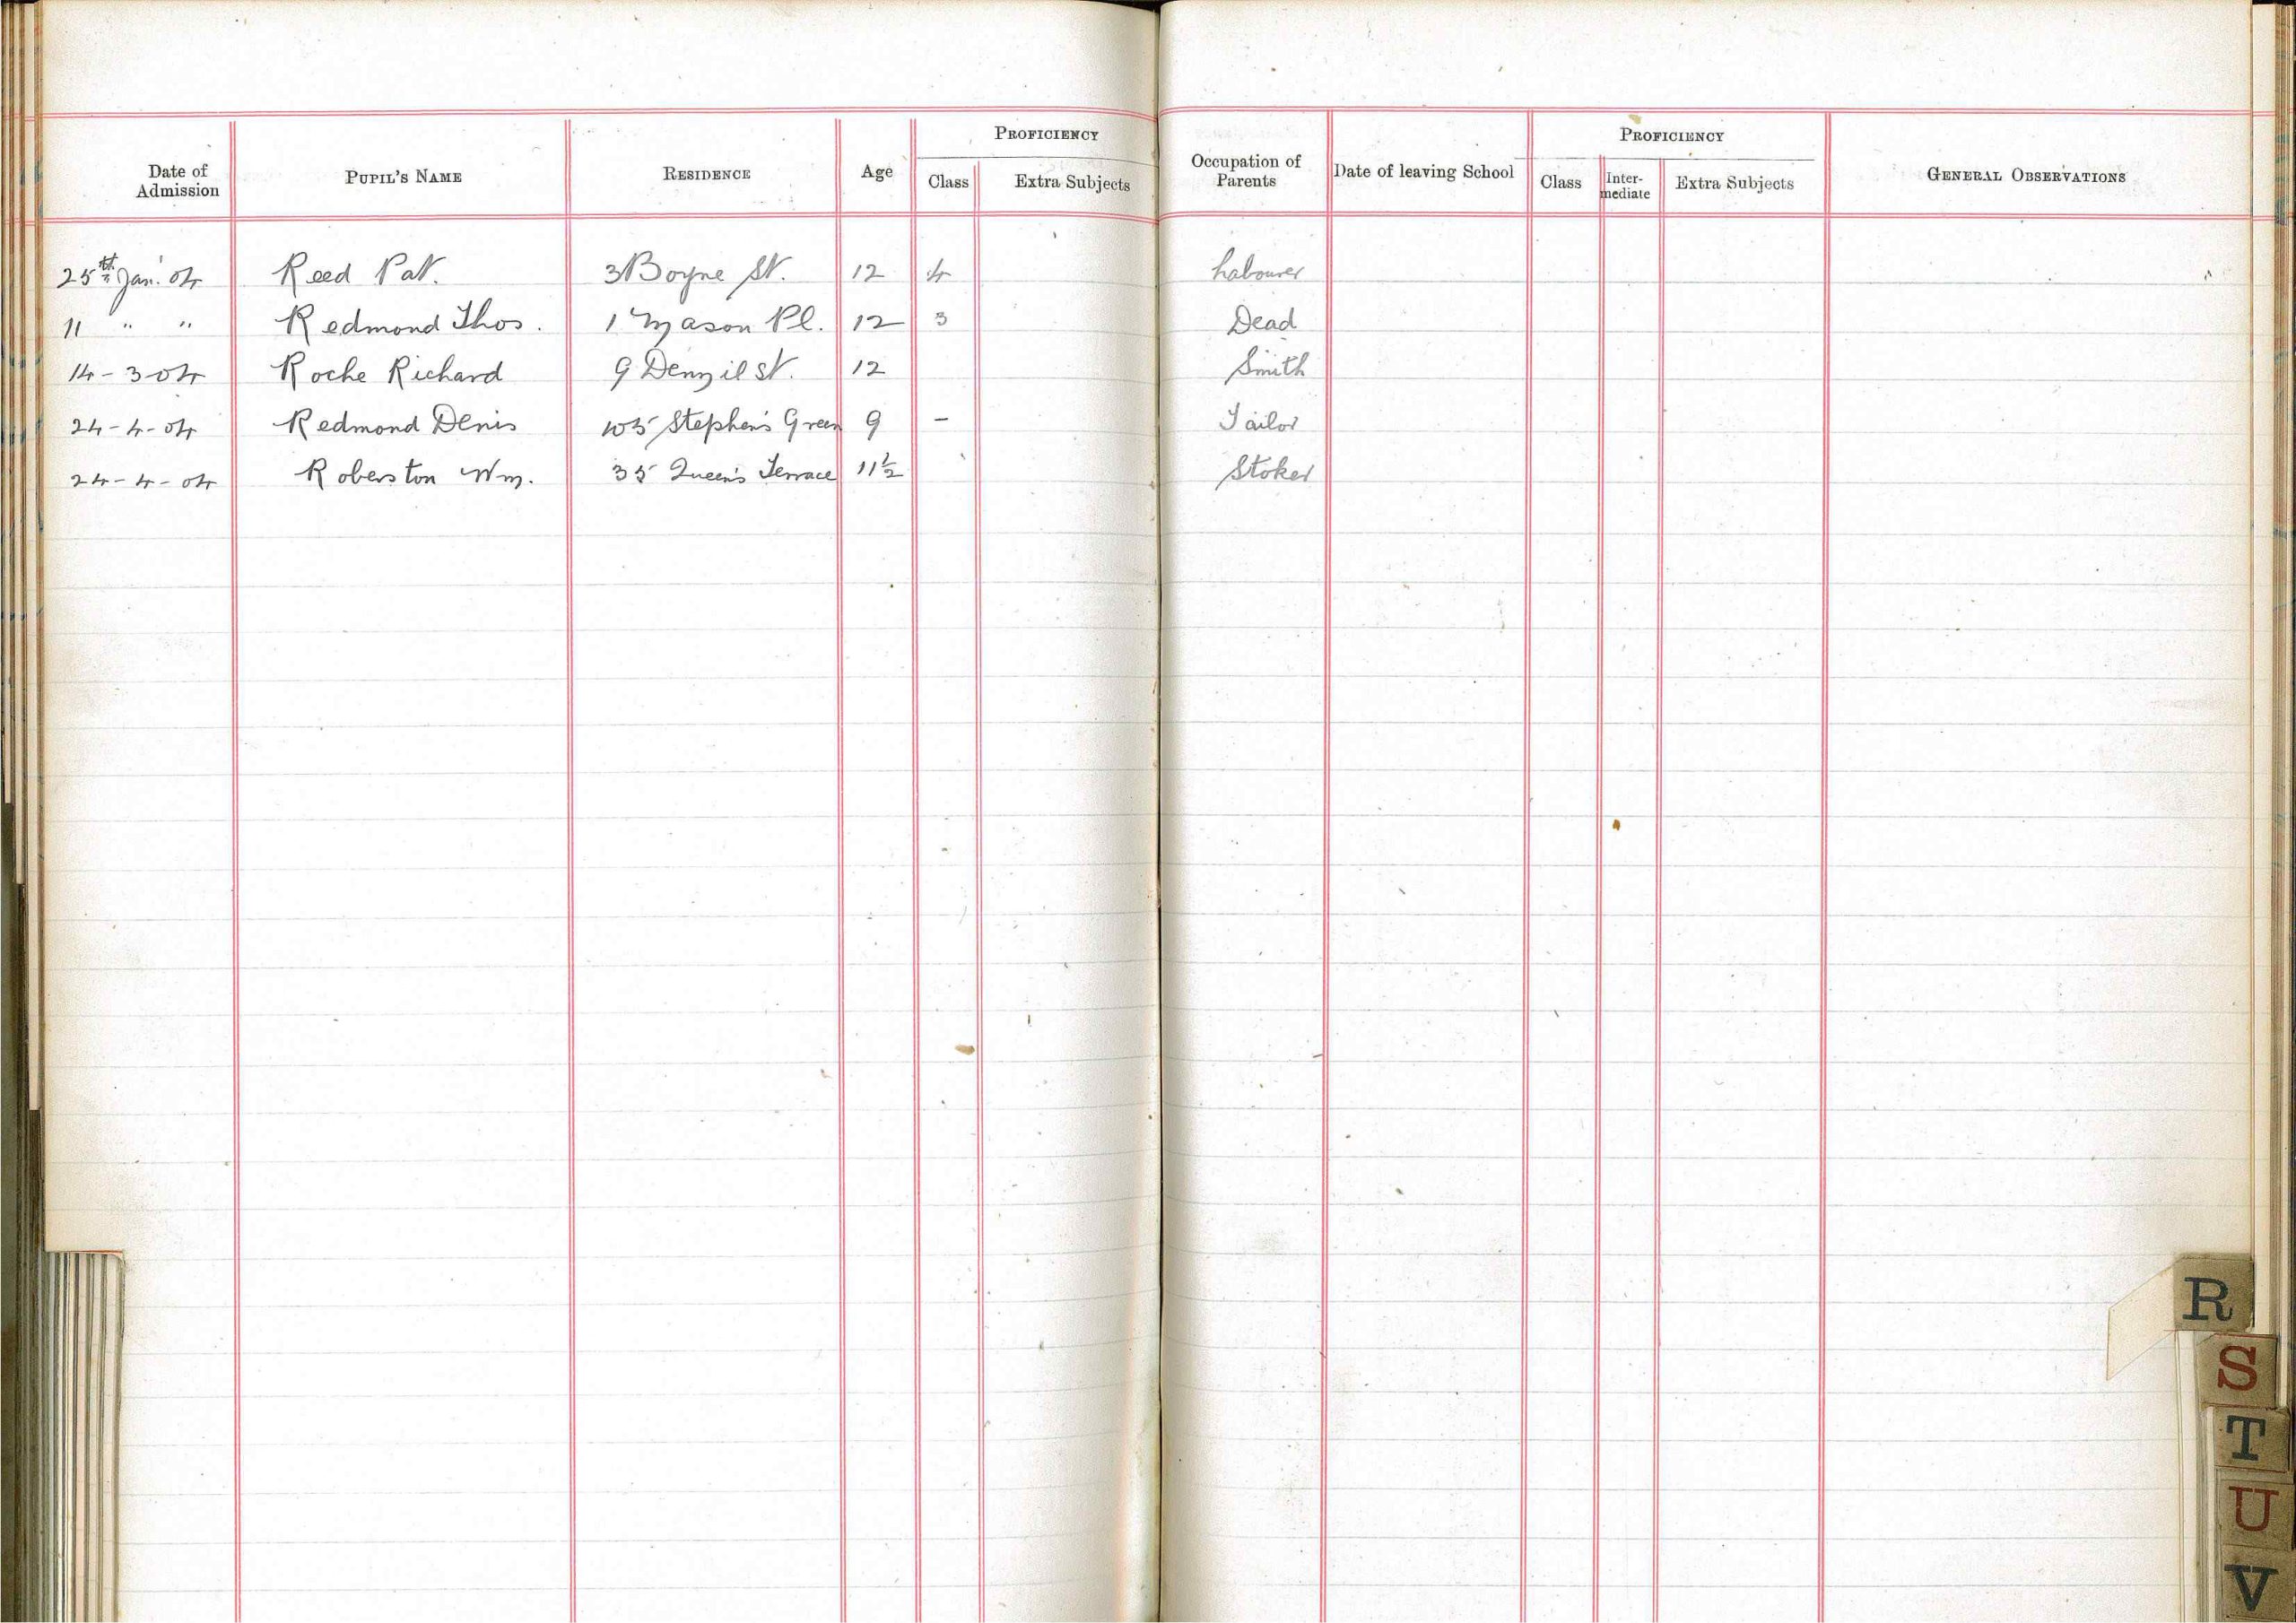 PROFICIENCY PROFICIENCY
Date of Admission PUPIL'S NAME RESIDENCE Age Class Extra Subjects Occupation of Parents Date of leaving School Class Inter-mediate Extra Subjects GENERAL OBSERVATIONS
25th Jan. 04 Reed Pat. 3 Boyne St. 12 4 Labourer
11 " " Redmond Thos. 1 Mason Pl. 12 3 Dead
14-3-04 Roche Richard 9 Denzil St. 12 Smith
24-4-04 Redmond Denis 105 Stephen's Green 9 – Tailor
24-4-04 Roberston Wm. 35 Queen's Terrace 11½ Stoker
R
S
T
U
V